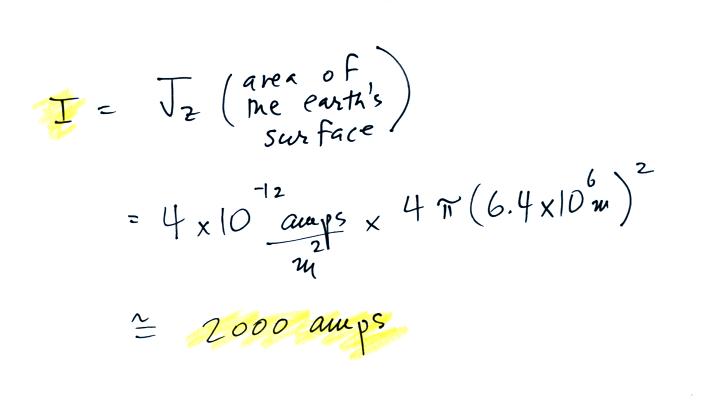 I = J_z (area of
the earth's
surface)
= 4 x 10^-12 amps/m^2 x 4 π (6.4 x 10^6 m)^2
≅ 2000 amps